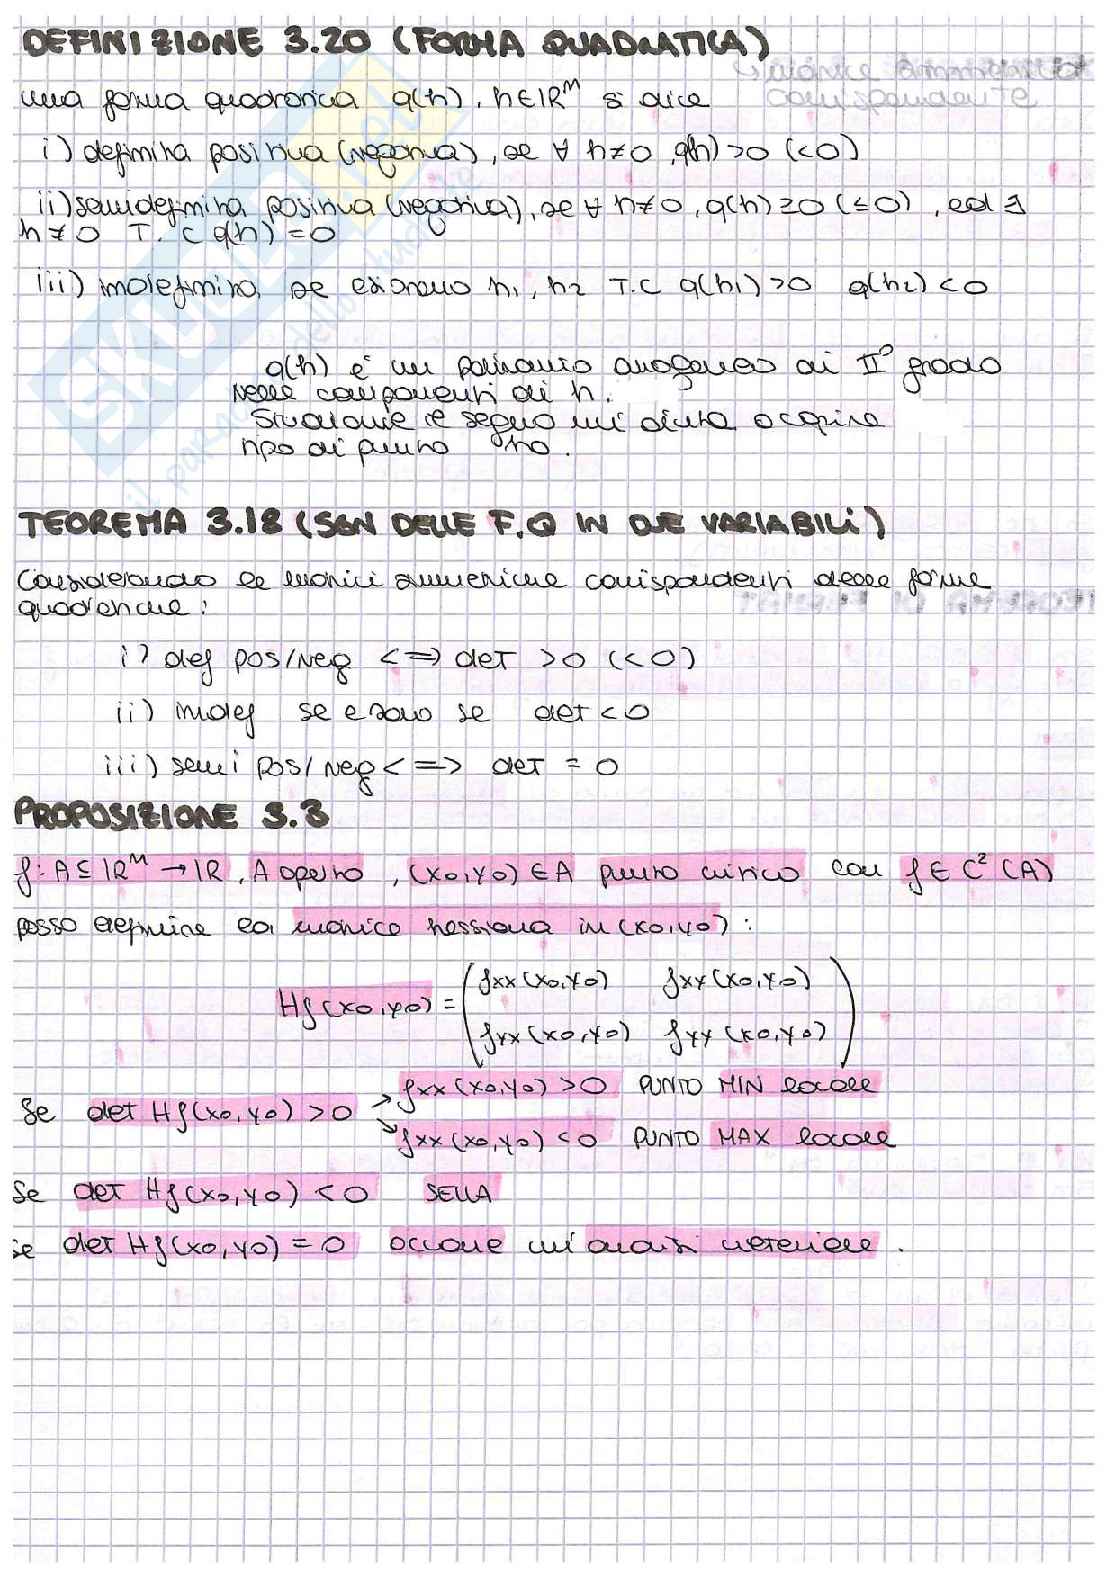 DEFINIZIONE 3.20 (FORMA QUADRATICA)
una forma quadratica q(h), h∈IRᵐ si dice
i) definita positiva (negativa), se ∀ h≠0, q(h)>0 (<0)
ii) semidefinita positiva (negativa), se ∀ h≠0, q(h)≥0 (≤0), ed ∃
h≠0 T.C q(h)=0
iii) indefinita, se esistono h₁, h₂ T.C q(h₁)>0 q(h₂)<0
q(h) è un polinomio omogeneo di II° grado
nelle componenti di h.
Studiare il segno mi aiuta a capire
tipo di punto ho.
TEOREMA 3.18 (SGN DELLE F.Q IN DUE VARIABILi)
Considerando le matrici simmetriche corrispondenti delle forme
quadratiche:
i) def pos/neg <=> det >0 (<0)
ii) indef se e solo se det<0
iii) semi pos/neg <=> det = 0
PROPOSIZIONE 3.3
f: A⊆IRᵐ→IR, A aperto, (x₀,y₀)∈A punto critico con f∈C²(A)
posso definire la matrice hessiana in (x₀,y₀):
Hf(x₀,y₀) = (fxx(x₀,y₀) fxy(x₀,y₀)
fyx(x₀,y₀) fyy(x₀,y₀))
fxx(x₀,y₀)>0 PUNTO MIN locale
Se det Hf(x₀,y₀)>0
fxx(x₀,y₀)<0 PUNTO MAX locale
Se det Hf(x₀,y₀)<0 SELLA
se det Hf(x₀,y₀)=0 occorre un'analisi ulteriore.